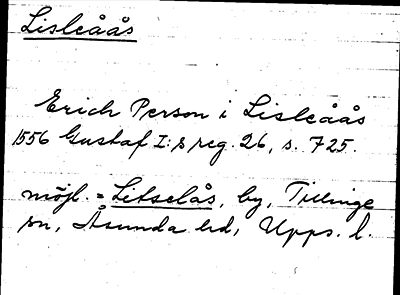 Lisleåås
Erich Person i Lisleåås
1556 Gustaf I:s reg. 26, s. 725.
möjl. = Litselås, by, Tillinge
sn, Åsunda hd, Upps. l.